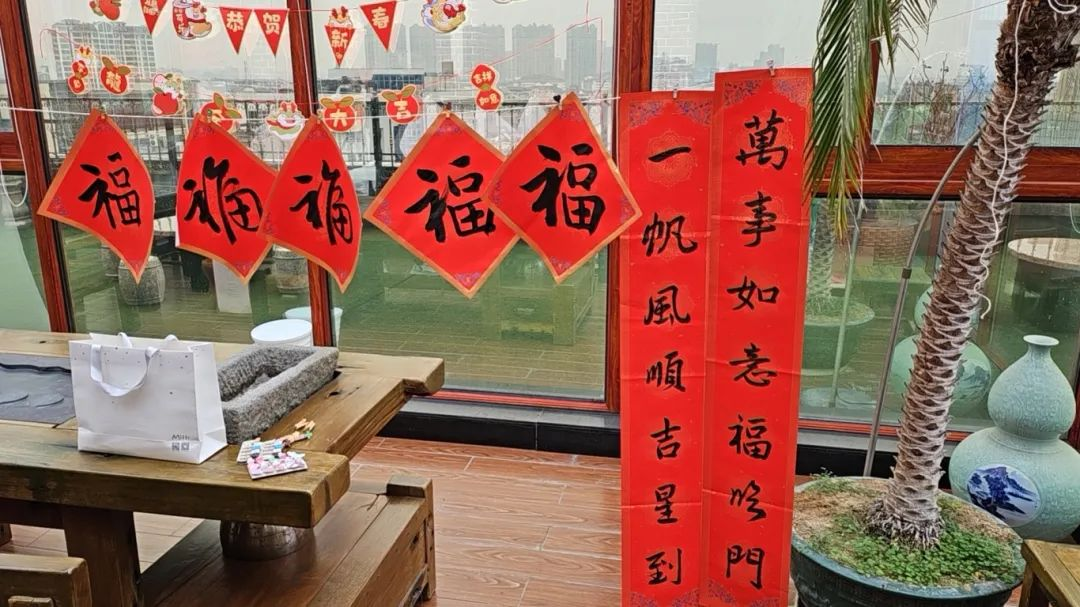 恭贺新春
大吉
吉祥如意
福
福
福
福
福
一帆風順吉星到
萬事如意福临門